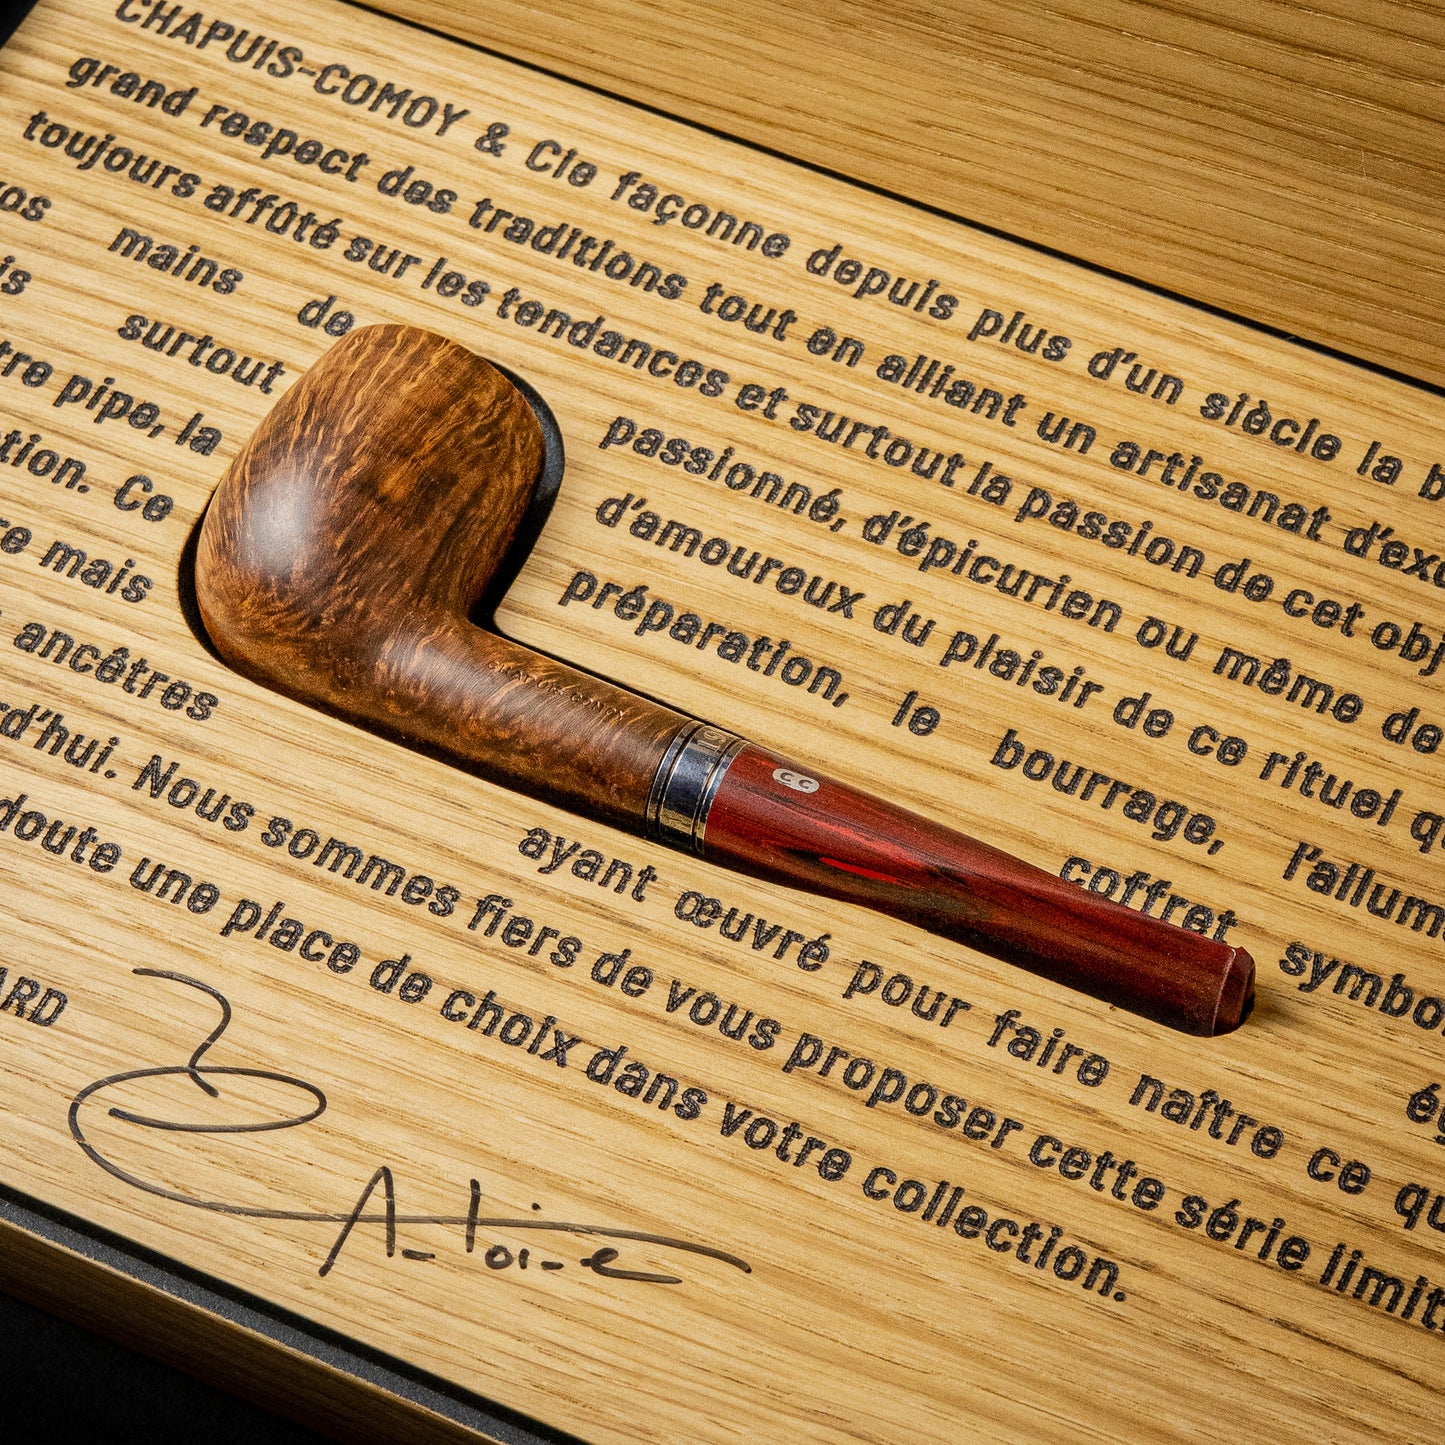 CHAPUIS-COMOY & Cie façonne depuis plus d'un siècle la
grand respect des traditions tout en alliant un artisanat
toujours affûté sur les tendances et surtout la passion de cet
mains de passionné, d'épicurien ou même de
surtout d'amoureux du plaisir de ce rituel
pipe, la préparation, le bourrage,
Ce coffret
mais
ancêtres ayant œuvré pour faire naître ce
Nous sommes fiers de vous proposer cette série
doute une place de choix dans votre collection.
Antoine
CC